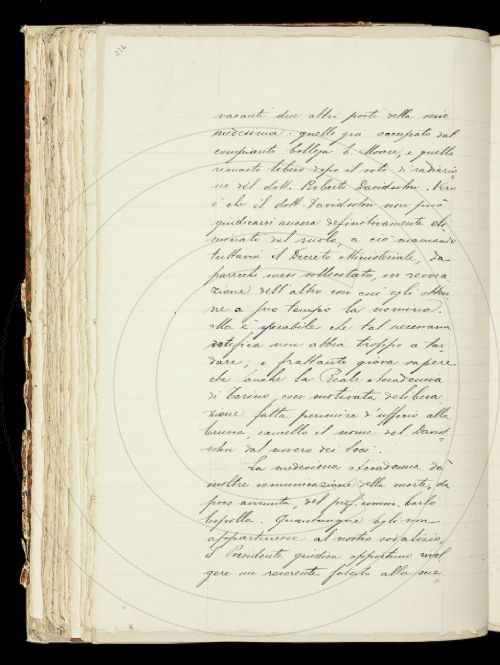 vacanti due altri posti della serie
medesima: quello già occupato dal
compianto collega E. Moore, e quello
rimasto libero dopo il voto di radiazio=
ne del dott. Roberto Davidsohn. Vero
è che il dott. Davidsohn non può
giudicarsi ancora definitivamente eli=
minato dal ruolo, a ciò mancando
tuttavia il Decreto Ministeriale, da
parecchi mesi sollecitato, in revoca=
zione dell'altro con cui egli otten=
ne a suo tempo la nomina.
Ma è sperabile che tal necessaria
ratifica non abbia troppo a tar=
dare; e frattanto giova sapere
che anche la Reale Accademia
di Torino, con motivata delibera=
zione fatta pervenire d'ufficio alla
Crusca, cancellò il nome del Davids=
ohn dal novero dei Soci.
La medesima Accademia dà
inoltre comunicazione della morte, da
poco avvenuta, del prof. comm. Carlo
Cipolla. Quantunque Egli non
appartenesse al nostro sodalizio,
il Presidente giudica opportuno rivol=
gere un reverente saluto alla me=